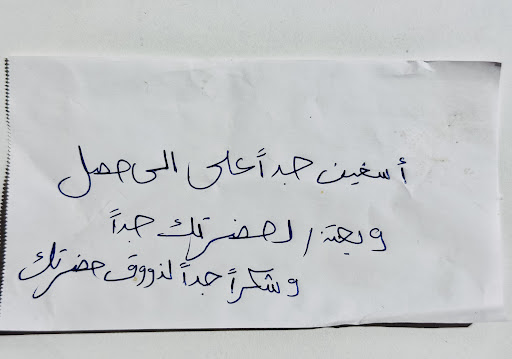 أسفين جداً على الى حصل
وبعتذر لحضرتك جداً
وشكراً جداً لذووق حضرتك